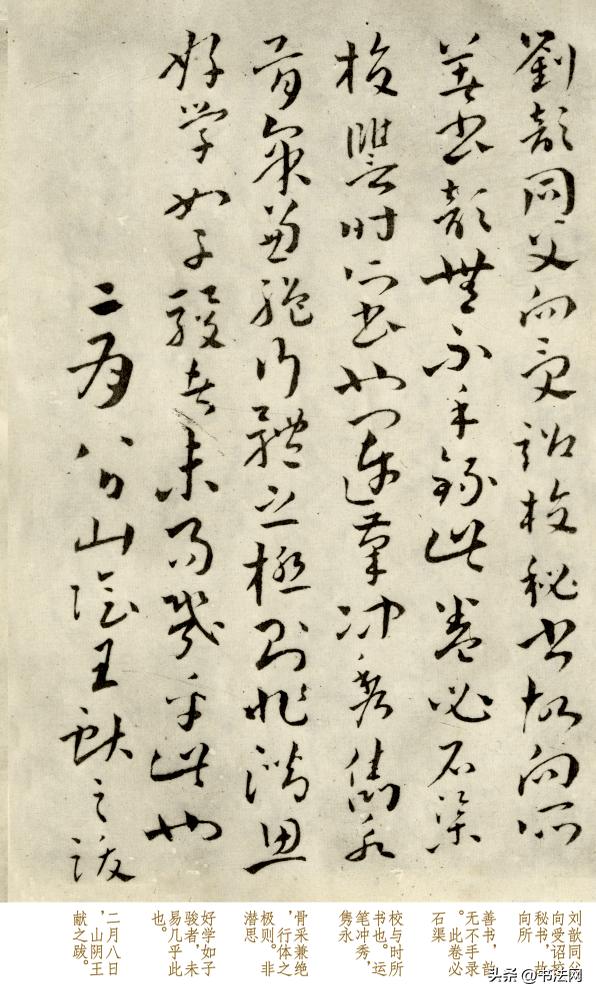 劉歆同父向受詔校秘书故向所
善书歆無不手録此卷必石渠
校讐时所书也運筆冲秀雋永
骨采兼絶行體之極则非潜思
好学如子駿者未易幾乎此也
二月八日山陰王献之跋
刘歆同父
向受诏校
秘书，故
向所
善书，韵
无不手录
。此卷必
石渠
校与时所
书也。运
笔冲秀，
隽永
骨采兼绝
，行体之
极则。非
潜思
好学如子
骏者，未
易几乎此
也。
二月八日
，山阴王
献之跋。
头条 @书法网